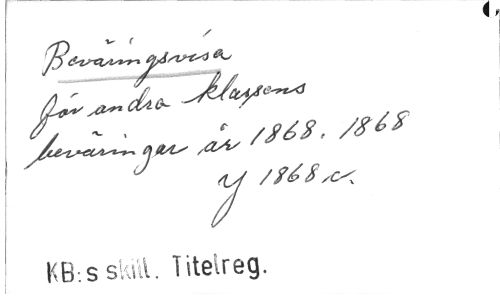 Beväringsvisa
för andra klassens
beväringar år 1868. 1868
Y 1868 c.
KB:s skill. Titelreg.